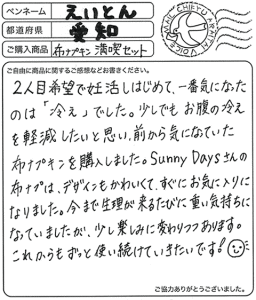 ペンネーム えいとん
都道府県 愛知
ご購入商品 布ナプキン満喫セット
ご自由に商品に関するご感想などお書きください。
2人目希望で妊活しはじめて、一番気になった
のは「冷え」でした。少しでもお腹の冷え
を軽減したいと思い、前から気になっていた
布ナプキンを購入しました。Sunny Daysさんの
布ナプは、デザインもかわいくて、すぐにお気に入りに
なりました。今まで生理が来るたびに重い気持ちに
なっていましたが、少し楽しみに変わりつつあります。
これからもずっと使い続けていきたいです!
ご協力ありがとうございました。